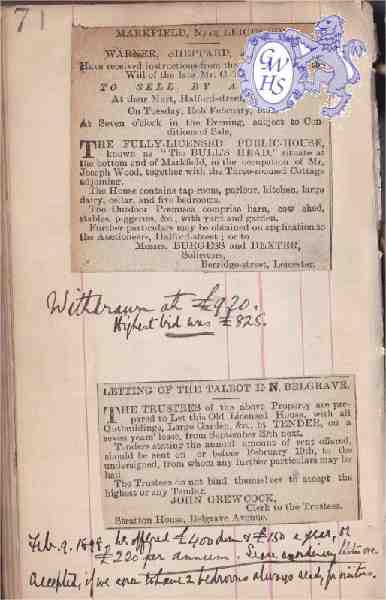 71
GWHS
MARKFIELD, Near
WARNER, SHEPPARD,
Have received instructions from the
Will of the late Mr.
TO SELL BY
At their Mart, Halford-street,
On Tuesday, February,
At Seven o'clock in the Evening, subject to Con-
ditions of Sale,
THE FULLY-LICENSED PUBLIC-HOUSE,
known as "The BULL'S HEAD," situate at
the bottom end of Markfield, in the occupation of Mr.
Joseph Wood, together with the Three-roomed Cottage
adjoining.
The House contains tap-room, parlour, kitchen, large
dairy, cellar, and five bedrooms.
The Outdoor Premises comprise barn, cow shed,
stables, piggeries, &c., with yard and garden.
Further particulars may be obtained on application to
the Auctioneers, Halford-street; or to
Messrs. BURGESS and DEXTER,
Solicitors,
Berridge-street, Leicester.
Withdrawn at £920.
Highest bid was £825.
LETTING OF THE TALBOT INN, BELGRAVE.
THE TRUSTEES of the above Property are pre-
pared to Let this Old Licensed House, with all
Outbuildings, Large Garden, &c., by TENDER, on a
seven years' lease, from September 29th next.
Tenders stating the annual amount of rent offered,
should be sent on or before February 12th, to the
undersigned, from whom any further particulars may be
had.
The Trustees do not bind themselves to accept the
highest or any Tender.
JOHN GREWCOCK,
Clerk to the Trustees.
Stratton House, Belgrave Avenue.
Feb. 9. 1898, we offered £400 down & £150 a year, or
£220 per annum.
Accepted, if we covenant to have 2 bedrooms always ready for visitors.